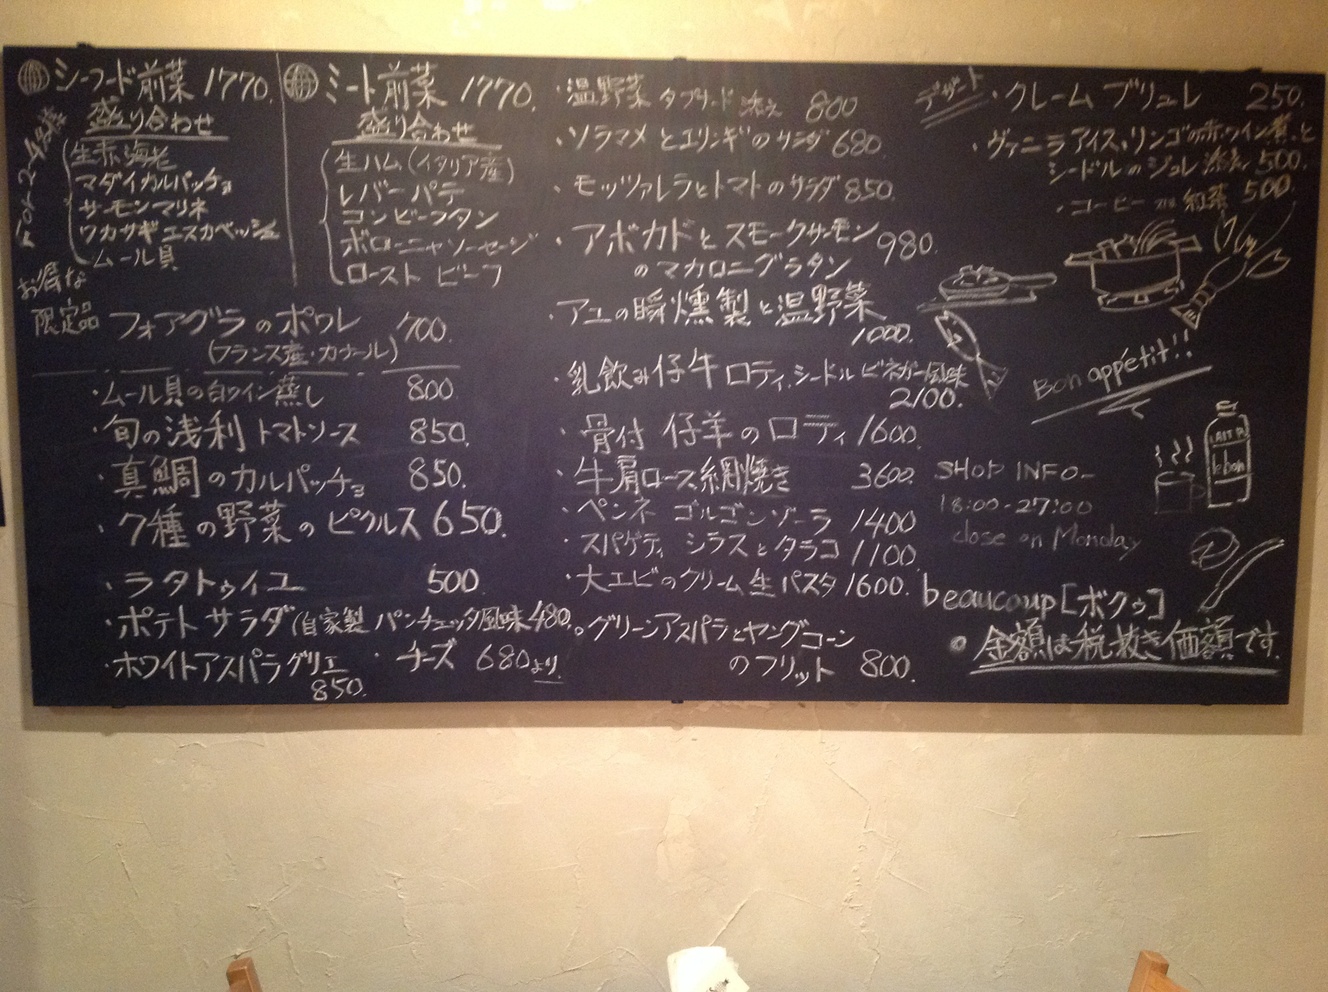 シーフード前菜 1770.
盛り合わせ
for 2-4名様
生赤海老
マダイカルパッチョ
サーモンマリネ
ワカサギエスカベッシュ
ムール貝
お得な
限定品 フォアグラのポワレ 700.
(フランス産・カナール)
・ムール貝の白ワイン蒸し 800
・旬の浅利 トマトソース 850.
・真鯛のカルパッチョ 850.
・7種の野菜のピクルス 650.
・ラタトゥイユ 500
・ポテトサラダ(自家製 パンチェッタ風味 480.
・ホワイトアスパラグリエ
850.
・チーズ 680より.
ミート前菜 1770.
盛り合わせ
生ハム(イタリア産)
レバーパテ
コンビーフタン
ボローニャソーセージ
ローストビーフ
・温野菜 タプナード 添え 800
・ソラマメとエリンギのサラダ 680
・モッツァレラとトマトのサラダ 850.
・アボカドとスモークサーモン 980.
のマカロニグラタン
・アユの瞬燻製と温野菜
1000.
・乳飲み仔牛ロティ.シードルビネガー風味
2100.
・骨付仔羊のロティ 1600.
・牛肩ロース網焼き 3600.
・ペンネ ゴルゴンゾーラ 1400
・スパゲティ シラスとタラコ 1100.
・大エビのクリーム生パスタ 1600.
。グリーンアスパラとヤングコーン
のフリット 800.
デザート ・クレームブリュレ 250.
・ヴァニラアイス、リンゴの赤ワイン煮と
シードルのジュレ 添え 500.
・コーヒー or 紅茶 500.
Bon appétit!!
LAIT
le bon
SHOP INFO-
18:00-27:00
close on Monday
beaucoup[ボクゥ]
金額は税抜き価額です.